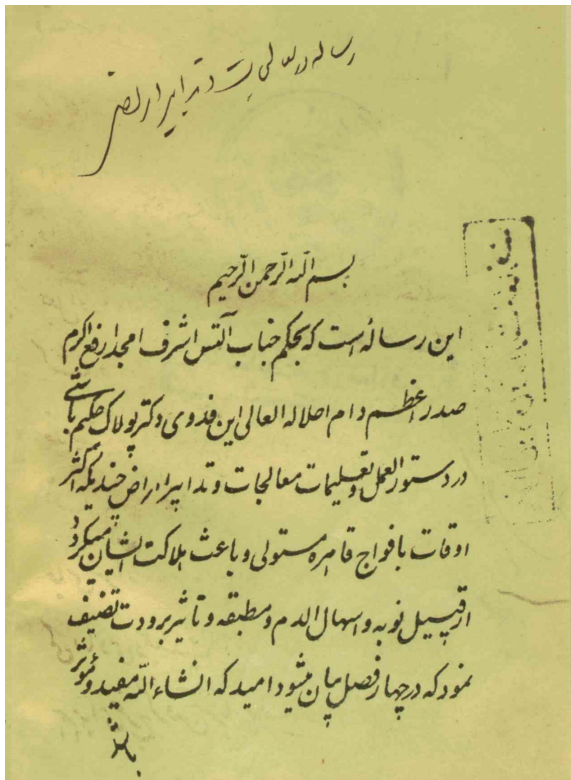 رساله در معالجات و تدابیر امراض
بسم الله الرحمن الرحیم
این رساله است که بحکم جناب اشرف امجد ارفع اکرم
صدر اعظم دام اجلاله العالی این فدوی دکتر پولاک حکیم باشی
در دستور العمل و تعلیمات معالجات و تدابیر امراض چندیکه اکثر
اوقات بافواج قاهره مستولی و باعث هلاکت ایشان میگردد
از قبیل نوبه و اسهال الدم و مطبقه و تاثیر برودت تصنیف
نمود که در چهار فصل بیان میشود امید که انشاء الله مفید و مؤثر
باشد